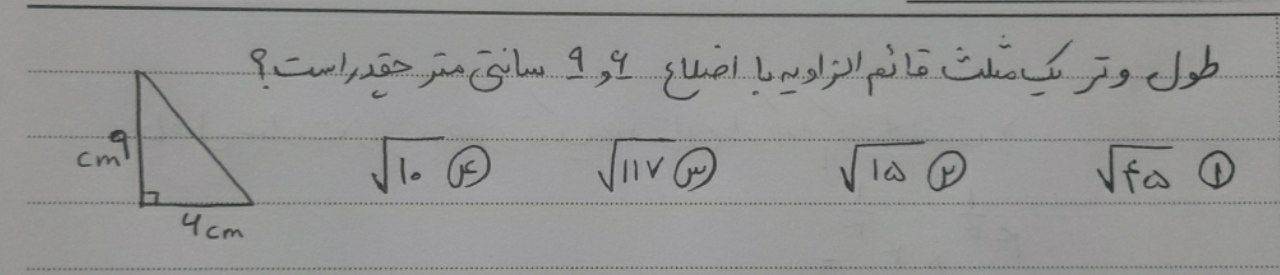 طول وتر یک مثلث قائم الزاویه با اضلاع ۶ و ۹ سانتی متر چقدر است؟
① √۴۵ ② √۱۵ ③ √۱۱۷ ④ √۱۰
۹ cm
۶ cm